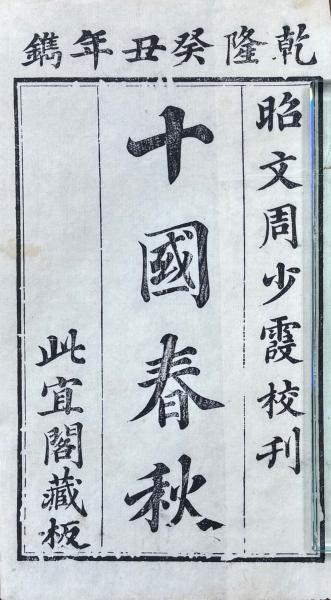 乾隆癸丑年鐫
昭文周少霞校刊
十國春秋
此宜閣藏板